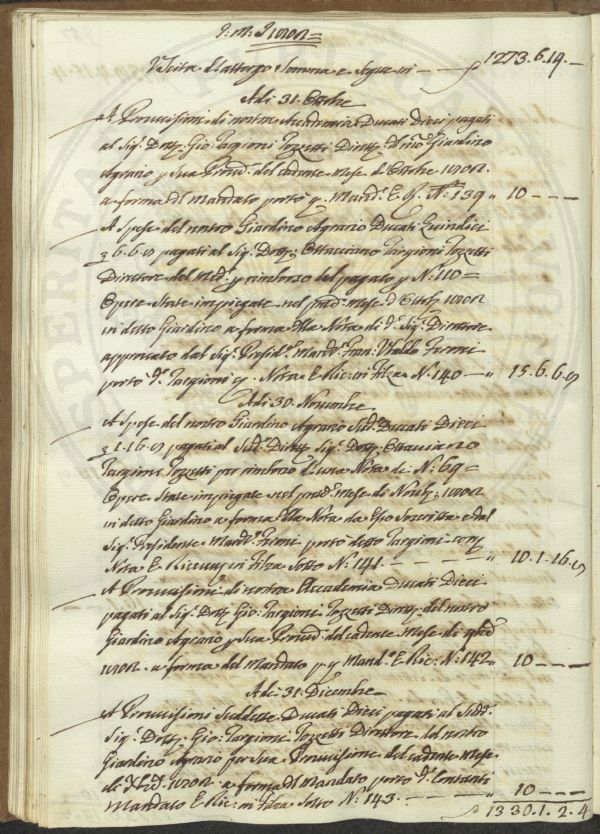 Uscita Dattergo Somma e Segue in — — 1273.6.19.—
A dì 31. Ottbre
A Provvisioni di nostra Accademia Ducati Dieci pagati
al Sigr. Dottr. Gio: Targioni Tozzetti Dirett. del nro. Giardino
Agrario p Sua Provd. del cadente Mese d'Ottbre
a forma del Mandato portò p. Mand. E R. No. 139 " 10 — — —
A Spese del nostro Giardino Agrario Ducati Quindici
6.6.8 pagati al Sigr. Dottr. Ottaviano Targioni Tozzetti
Direttore del Med. p rimborso del pagato p No. 110 =
Opere State impiegate nel pred. Mese d'Ottb.
in detto Giardino a forma della Nota di do. Sigr. Direttore
approvata dal Sigr. Presid. March. Fran. Ubaldo Feroni
portò do. Targioni p. Nota E Ric. in Filza No. 140 — " 15.6.6.8
A dì 30. Novembre
A Spese del nostro Giardino Agrario Sudo. Ducati Dieci
1.16.8 pagati al Sudo. Dirett. Sigr. Dottr. Ottaviano
Targioni Tozzetti per rimborso d'una Nota di No. 69 =
Opere State impiegate nel pred. Mese di Novb.
in detto Giardino a forma della Nota da Esso Soscritta e dal
Sigr. Presidente March. Feroni portò detto Targioni con
Nota E Ricev. in Filza Sotto No. 141. — — — " 10.1.16.8
A Provvisioni di nostra Accademia Ducati Dieci
pagati al Sigr. Dottr. Gio: Targioni Tozzetti Dirett. del nostro
Giardino Agrario p Sua Provd. del cadente Mese di 9bre
a forma del Mandato p. Mand. E Ric. No. 142 " 10 — — —
A dì 31. Dicembre
A Provvisioni Suddette Ducati Dieci pagati al Sudd.
Sigr. Dottr. Gio: Targioni Tozzetti Direttore del nostro
Giardino Agrario per Sua Provvisione del cadente Mese
di Xbre a forma del Mandato portò do. Contanti
Mandato E Ric. in Filza Sotto No. 143. — — " 10 — — —
1330.1.2.4